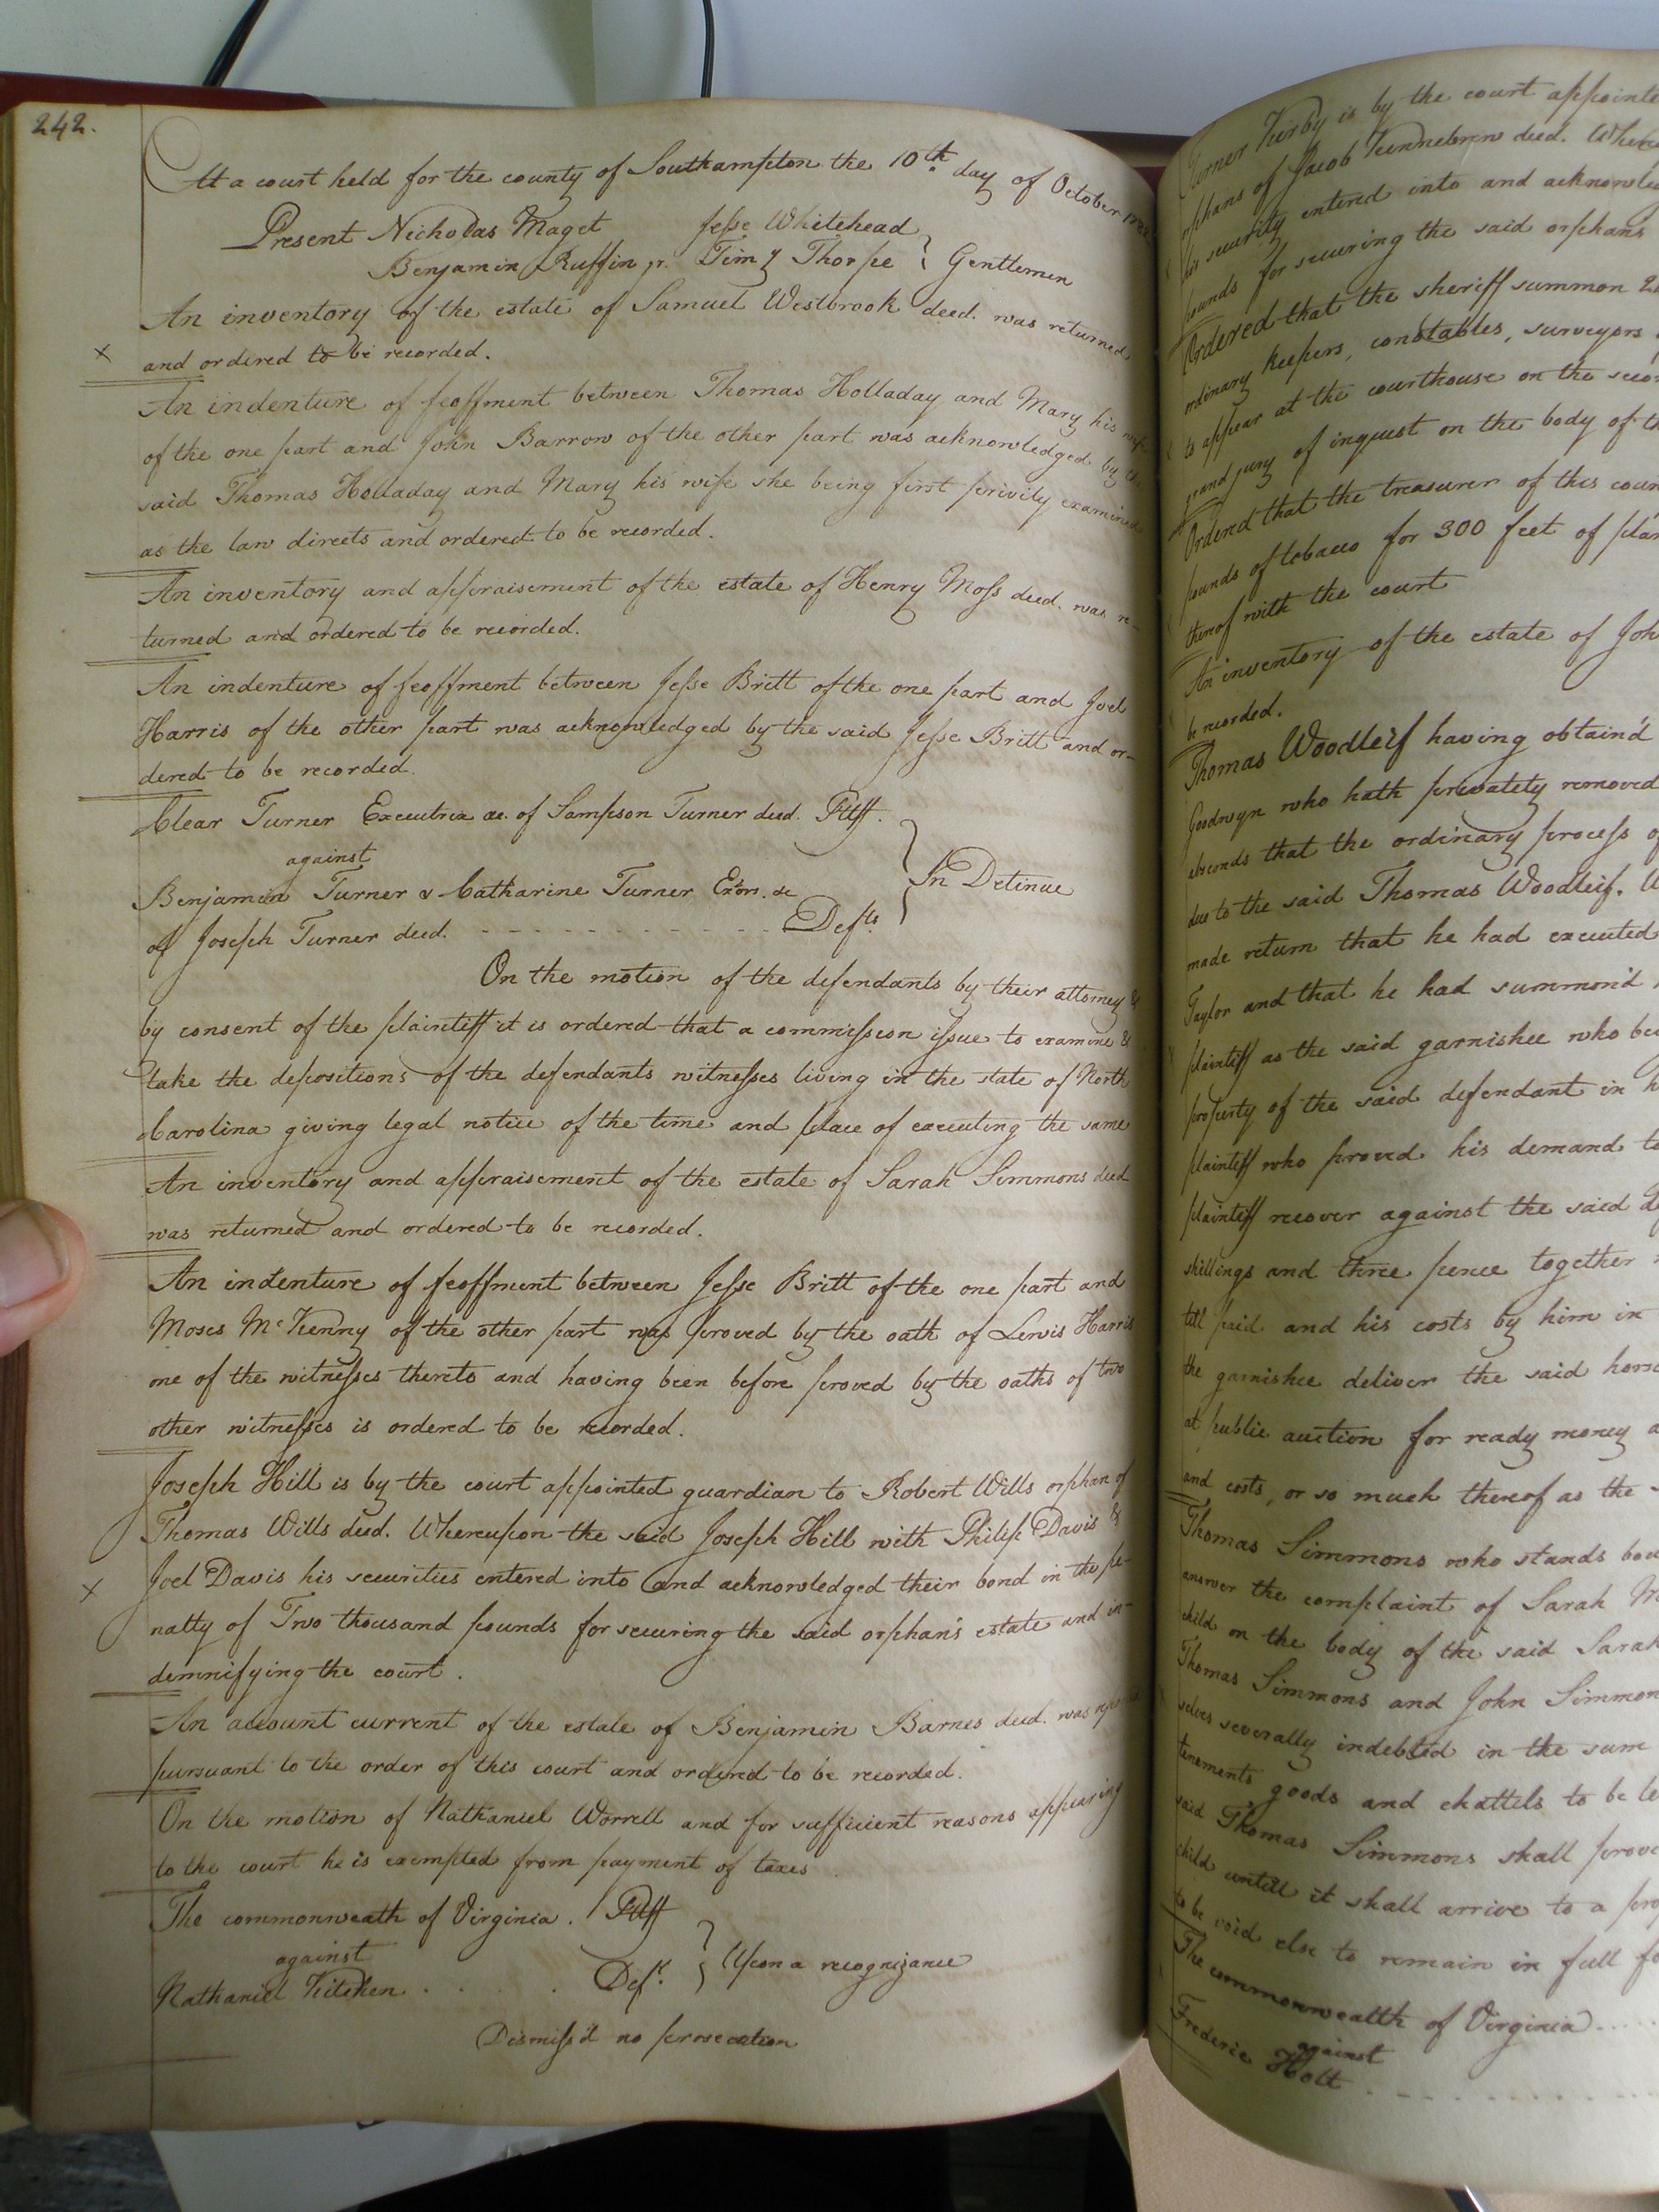 242.
At a court held for the county of Southampton the 10th. day of October
Present Nicholas Maget Jesse Whitehead
Benjamin Ruffin jr. Timy Thorpe } Gentlemen
An inventory of the estate of Samuel Westbrook decd. was returned
and ordered to be recorded.
An indenture of feoffment between Thomas Holladay and Mary his wife
of the one part and John Barrow of the other part was acknowledged by the
said Thomas Holladay and Mary his wife she being first privily examined
as the law directs and ordered to be recorded.
An inventory and appraisement of the estate of Henry Moss decd. was re-
turned and ordered to be recorded.
An indenture of feoffment between Jesse Britt of the one part and Joel
Harris of the other part was acknowledged by the said Jesse Britt and or-
dered to be recorded.
Clear Turner Executrix &c. of Sampson Turner decd. Pltff.
against
Benjamin Turner & Catharine Turner Exors. &c
of Joseph Turner decd. Defts. } In Detinue
On the motion of the defendants by their attorney &
by consent of the plaintiff it is ordered that a commission issue to examine &
take the depositions of the defendants witnesses living in the state of North
Carolina giving legal notice of the time and place of executing the same
An inventory and appraisement of the estate of Sarah Simmons decd
was returned and ordered to be recorded.
An indenture of feoffment between Jesse Britt of the one part and
Moses McKenny of the other part was proved by the oath of Lewis Harris
one of the witnesses thereto and having been before proved by the oaths of two
other witnesses is ordered to be recorded.
Joseph Hill is by the court appointed guardian to Robert Wills orphan of
Thomas Wills decd. Whereupon the said Joseph Hill with Philip Davis &
Joel Davis his securities entered into and acknowledged their bond in the pe-
nalty of Two thousand pounds for securing the said orphan's estate and in-
demnifying the court.
An account current of the estate of Benjamin Barnes decd. was
pursuant to the order of this court and ordered to be recorded.
On the motion of Nathaniel Worrell and for sufficient reasons appearing
to the court he is exempted from payment of taxes
The commonweath of Virginia. Pltff
against
Nathaniel Kitchen . . . Deft. } Upon a recognizance
Dismiss'd no prosecution
Turner Kirby is by the court appointe
orphans of Jacob Kinnebrew decd. Where
his security enterd into and acknowle
pounds for securing the said orphans
Ordered that the sheriff summon 2
ordinary keepers, constables, surveyors
to appear at the courthouse on the seco
grand jury of inquest on the body of th
Ordered that the treasurer of this coun
pounds of tobacco for 300 feet of plan
thereof with the court
An inventory of the estate of Joh
be recorded.
Thomas Woodleif having obtain'd
Goodwyn who hath privately removed
absconds that the ordinary process of
due to the said Thomas Woodleif. W
made return that he had executed
Taylor and that he had summond
plaintiff as the said garnishee who be
property of the said defendant in h
plaintiff who proved his demand to
plaintiff recover against the said
shillings and three pence together
till paid and his costs by him in
the garnishee deliver the said hors
at public auction for ready money a
and costs, or so much thereof as the
Thomas Simmons who stands bou
answer the complaint of Sarah M
child on the body of the said Sarah
Thomas Simmons and John Simmon
selves severally indebted in the sum
tenements, goods and chattels to be le
said Thomas Simmons shall prove
child untill it shall arrive to a pro
to be void else to remain in full fo
The commonwealth of Virginia .....
against
Frederic Holt